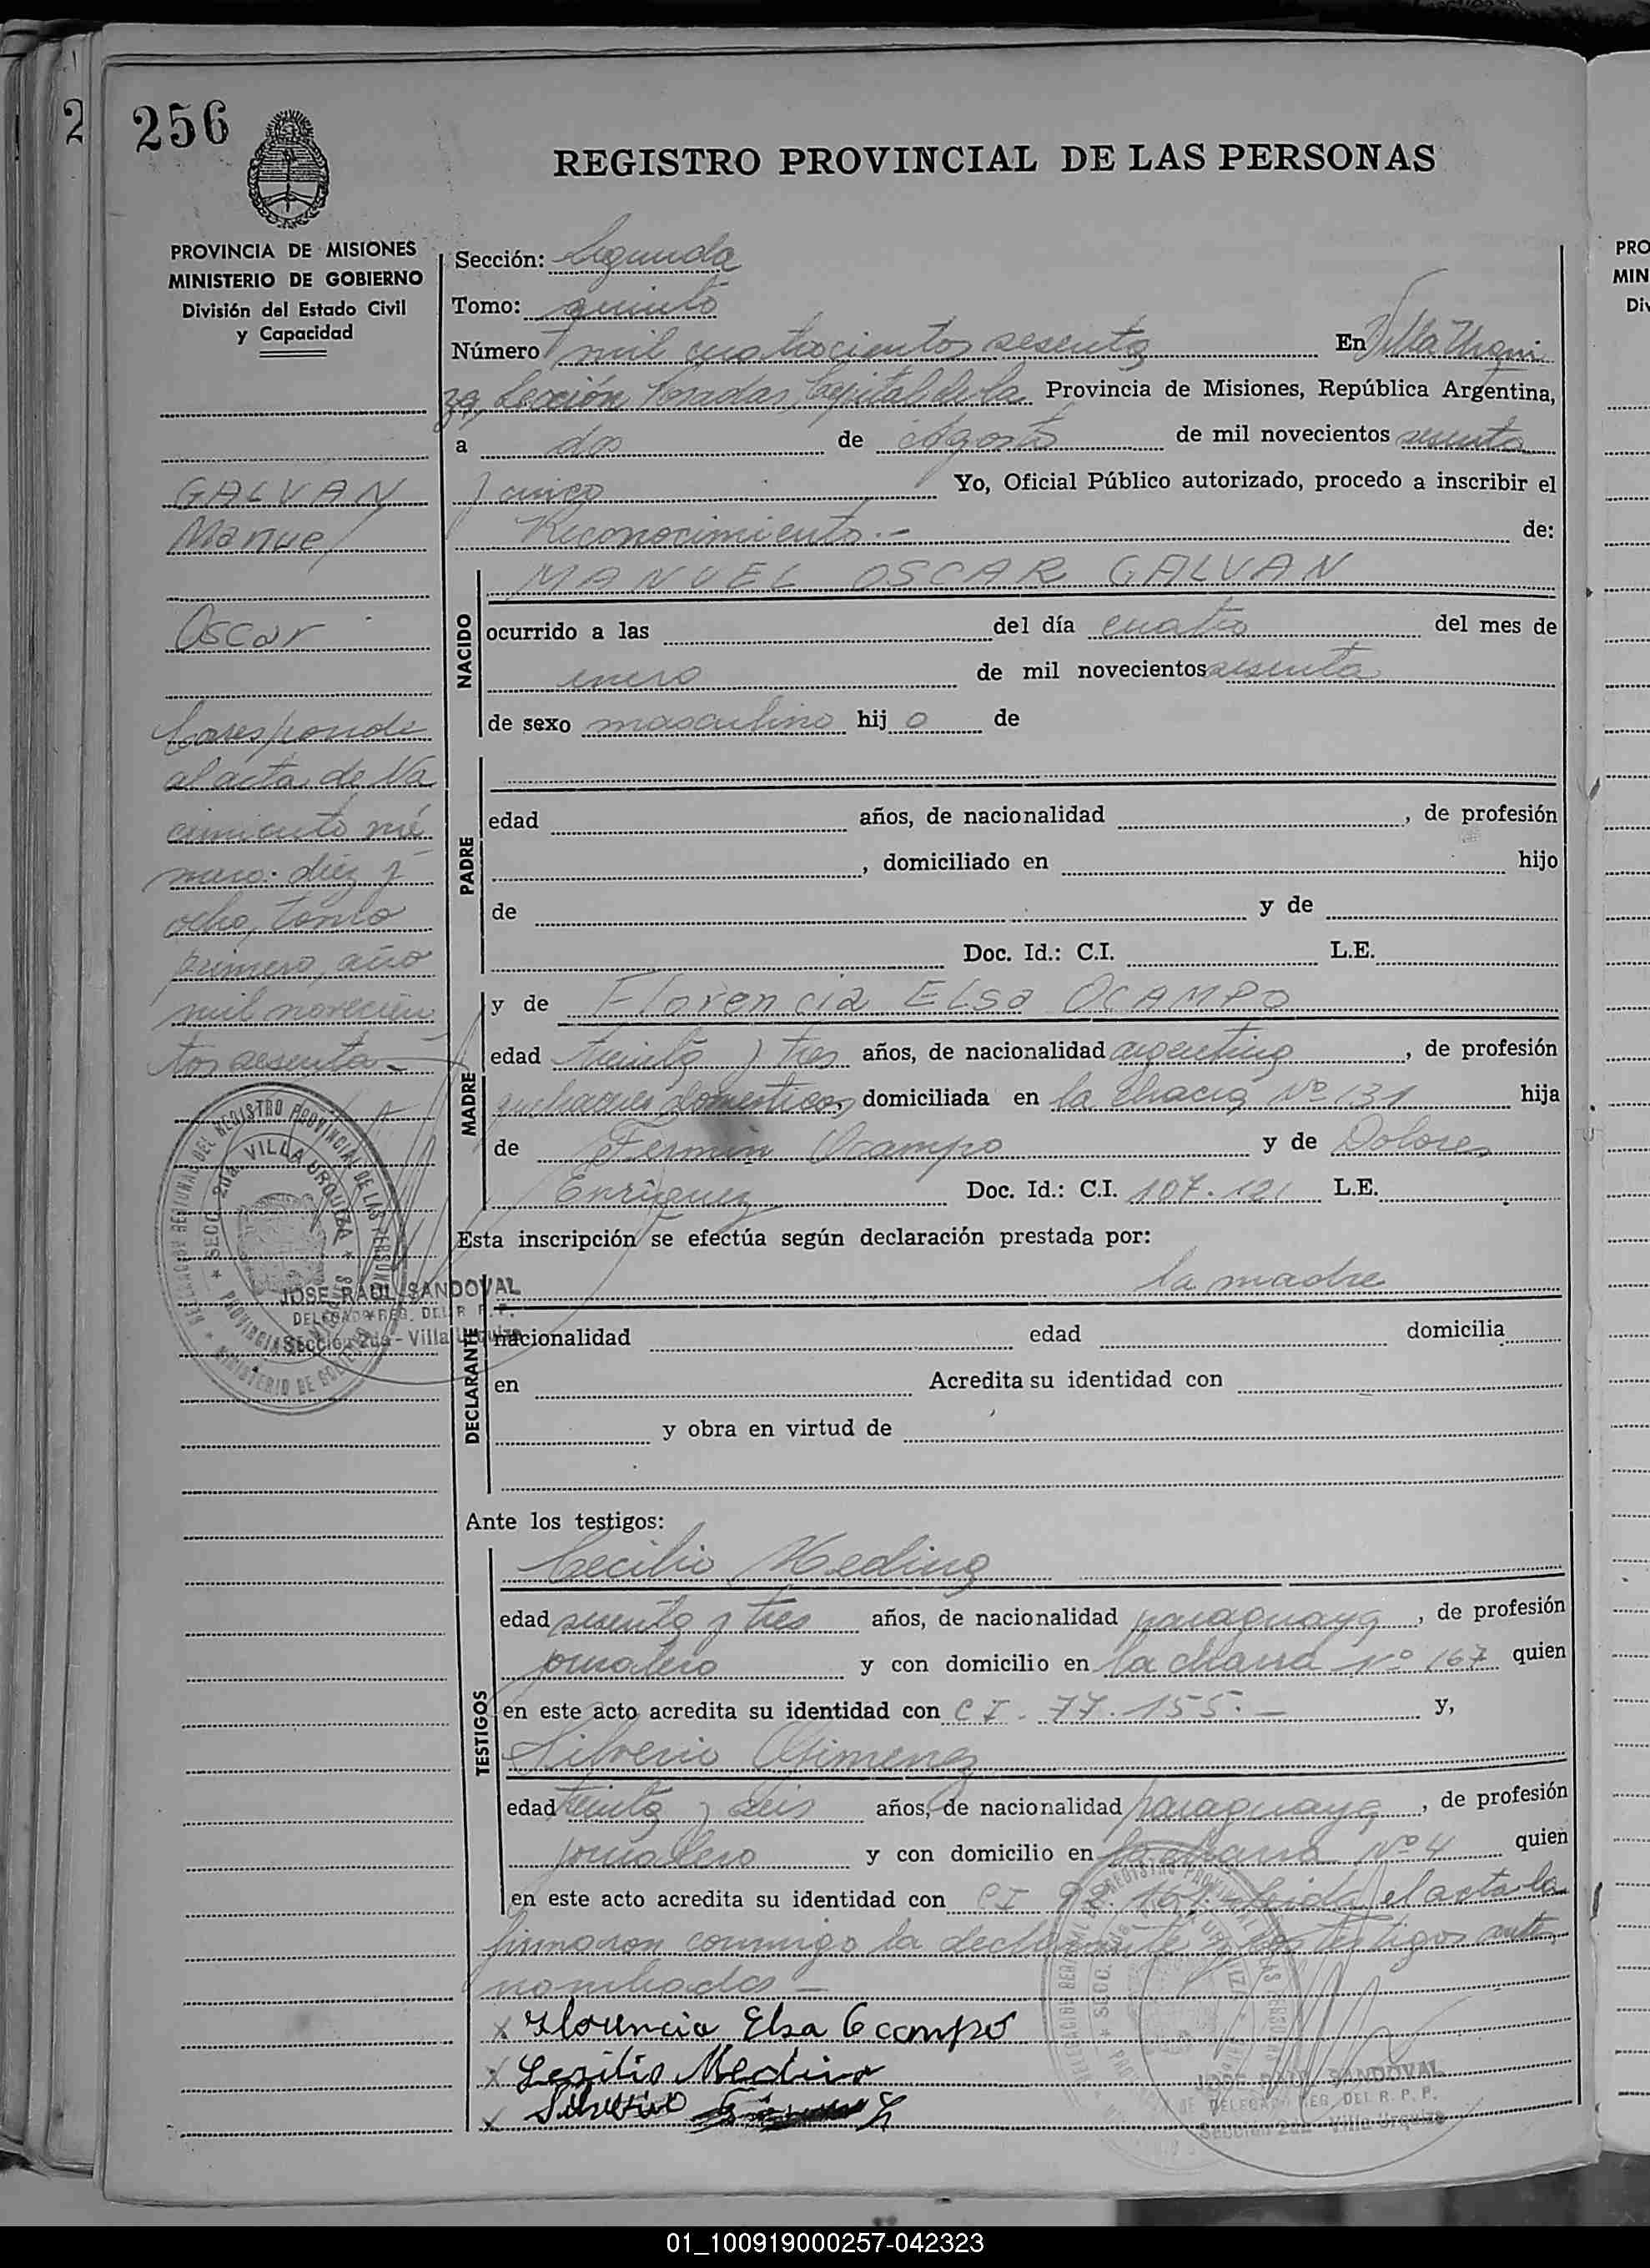 256
REGISTRO PROVINCIAL DE LAS PERSONAS
PROVINCIA DE MISIONES
MINISTERIO DE GOBIERNO
División del Estado Civil
y Capacidad
GALVAN
Manuel
Oscar
Corresponde
al acta de Na
cimiento nú
mero: diez y
ocho, tomo
primero, año
mil novecien
tos sesenta -
Sección: Segunda
Tomo: quinto
Número mil cuatrocientos sesenta En Villa Urqui
za, Sección Posadas, Capital de la Provincia de Misiones, República Argentina,
a dos de Agosto de mil novecientos sesenta
y cinco Yo, Oficial Público autorizado, procedo a inscribir el
Reconocimiento.- de:
NACIDO
MANUEL OSCAR GALVAN
ocurrido a las del día cuatro del mes de
enero de mil novecientos sesenta
de sexo masculino hijo de
PADRE
edad años, de nacionalidad , de profesión
, domiciliado en hijo
de y de
Doc. Id.: C.I. L.E.
MADRE
y de Florencia Elsa OCAMPO
edad treinta y tres años, de nacionalidad argentina , de profesión
quehaceres domesticos, domiciliada en la chacra Nº 131 hija
de Fermin Ocampo y de Dolores
Enriquez Doc. Id.: C.I. 107.121 L.E.
Esta inscripción se efectúa según declaración prestada por:
DECLARANTE
la madre
nacionalidad edad domicilia
en Acredita su identidad con
y obra en virtud de
Ante los testigos:
TESTIGOS
Cecilio Medina
edad sesenta y tres años, de nacionalidad paraguaya , de profesión
jornalero y con domicilio en la chacra Nº 167 quien
en este acto acredita su identidad con C I - 77.155.- y,
Silverio Gimenez
edad treinta y seis años, de nacionalidad paraguaya , de profesión
jornalero y con domicilio en la chacra Nº 4 quien
en este acto acredita su identidad con CI leida el acta la
firmaron conmigo la declarante y los testigos ante
nombrados -
x Florencia Elsa Ocampo
x Sesilio Medina
x Silverio
DELEGACION REGIONAL DEL REGISTRO PROVINCIAL DE LAS PERSONAS
SECC. 2da. VILLA URQUIZA
MINISTERIO DE GOBIERNO
JOSE RAUL SANDOVAL
DELEGADO REG. DEL R. P. P.
Sección 2da - Villa Urquiza
JOSE RAUL SANDOVAL
DELEGADO REG. DEL R. P. P.
Sección 2da - Villa Urquiza
2
PRO
MIN
Div
01_100919000257-042323